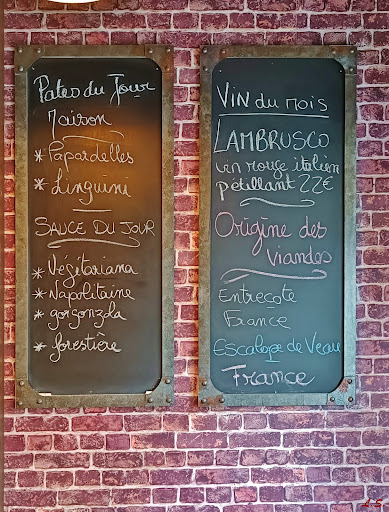 Pates du Jour
Maison
* Papardelles
* Linguini
SAUCE DU JOUR
* Végitariana
* Napolitaine
* gorgonzola
* forestière
VIN du mois
LAMBRUSCO
vin rouge italien
pétillant 22€
Origine des
viandes
Entrecote
France
Escalope de Veau
France